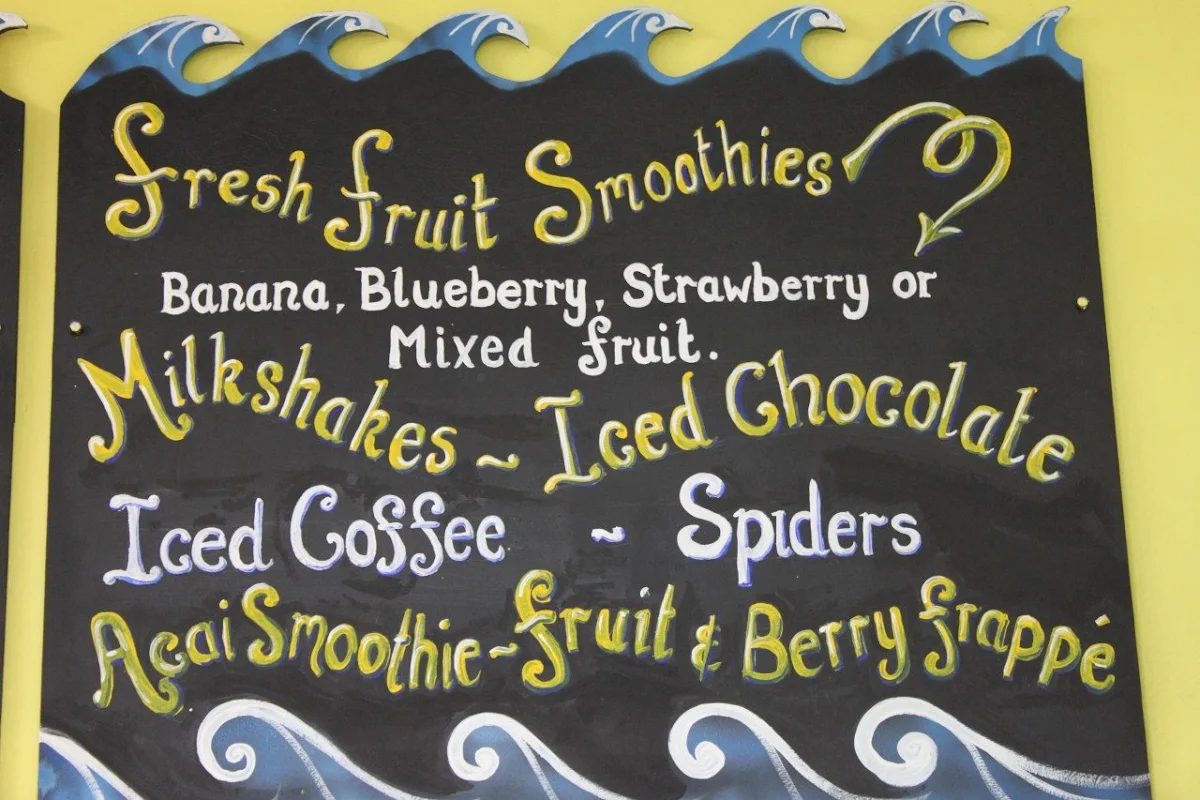 Fresh fruit Smoothies
Banana, Blueberry, Strawberry or
Mixed fruit.
Milkshakes ~ Iced Chocolate
Iced Coffee ~ Spiders
Açai Smoothie ~ fruit & Berry frappé